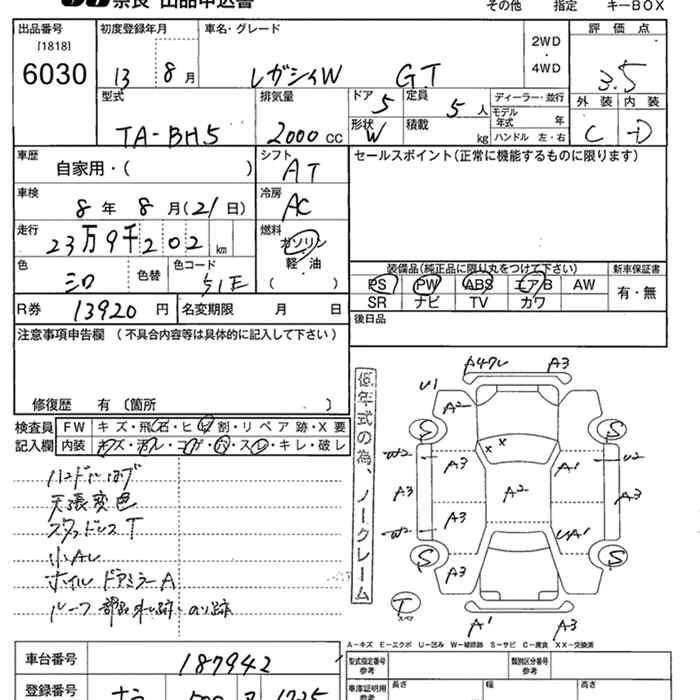 奈良 出品申込書
その他 指定 キーBOX
出品番号 初度登録年月 車名・グレード 2WD・4WD 評価点
[1818]
6030 13 8月 レガシィW GT 3.5
外装 内装
C D
型式 排気量 ドア 定員 ディーラー・並行
TA-BH5 2000cc 5 5人 モデル年式 年
形状 積載 ハンドル 左・右
W kg
車歴 シフト セールスポイント(正常に機能するものに限ります)
自家用・( ) AT
車検 冷房
8年 8月(21日) AC
走行 燃料
23万9千202km ガソリン
軽・油
( )
色 色替 色コード
シロ 51E
装備品(純正品に限り丸をつけて下さい) 新車保証書
PS PW ABS エアB AW 有・無
SR ナビ TV カワ
R券 13920円 名変期限 月 日 後日品
注意事項申告欄(不具合内容等は具体的に記入して下さい)
修復歴 有〔箇所 〕
検査員 FW キズ・飛石・ヒビ割・リペア跡・X要
記入欄 内装 キズ・汚レ・コゲ・穴・スレ・キレ・破レ
天張変色
スタッドレスT
小AL
ホイル ドアミラーA
低年式の為、ノークレーム
A4ツレ A3
U1 A2 S S
W2 A3 A1 U2
A3 A2 A3
W2 A3 UA1
S A3 S
T スペア
A1 A3
A-キズ E-エクボ U-凹み W-補修跡 S-サビ C-腐食 XX-交換済
車台番号 187942 型式指定番号 参考 類別区分番号 参考
登録番号 車庫証明用 参考 長さ 幅 高さ